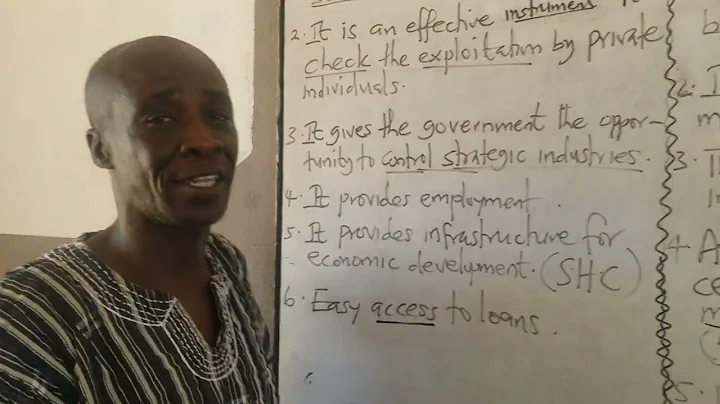 2. It is an effective instrument
check the exploitation by private
individuals.
3. It gives the government the oppor-
tunity to control strategic industries.
4. It provides employment.
5. It provides infrastructure for
economic development. (SHC)
6. Easy access to loans.
b
2. I
m
3. T
4. A
ce
m
5.